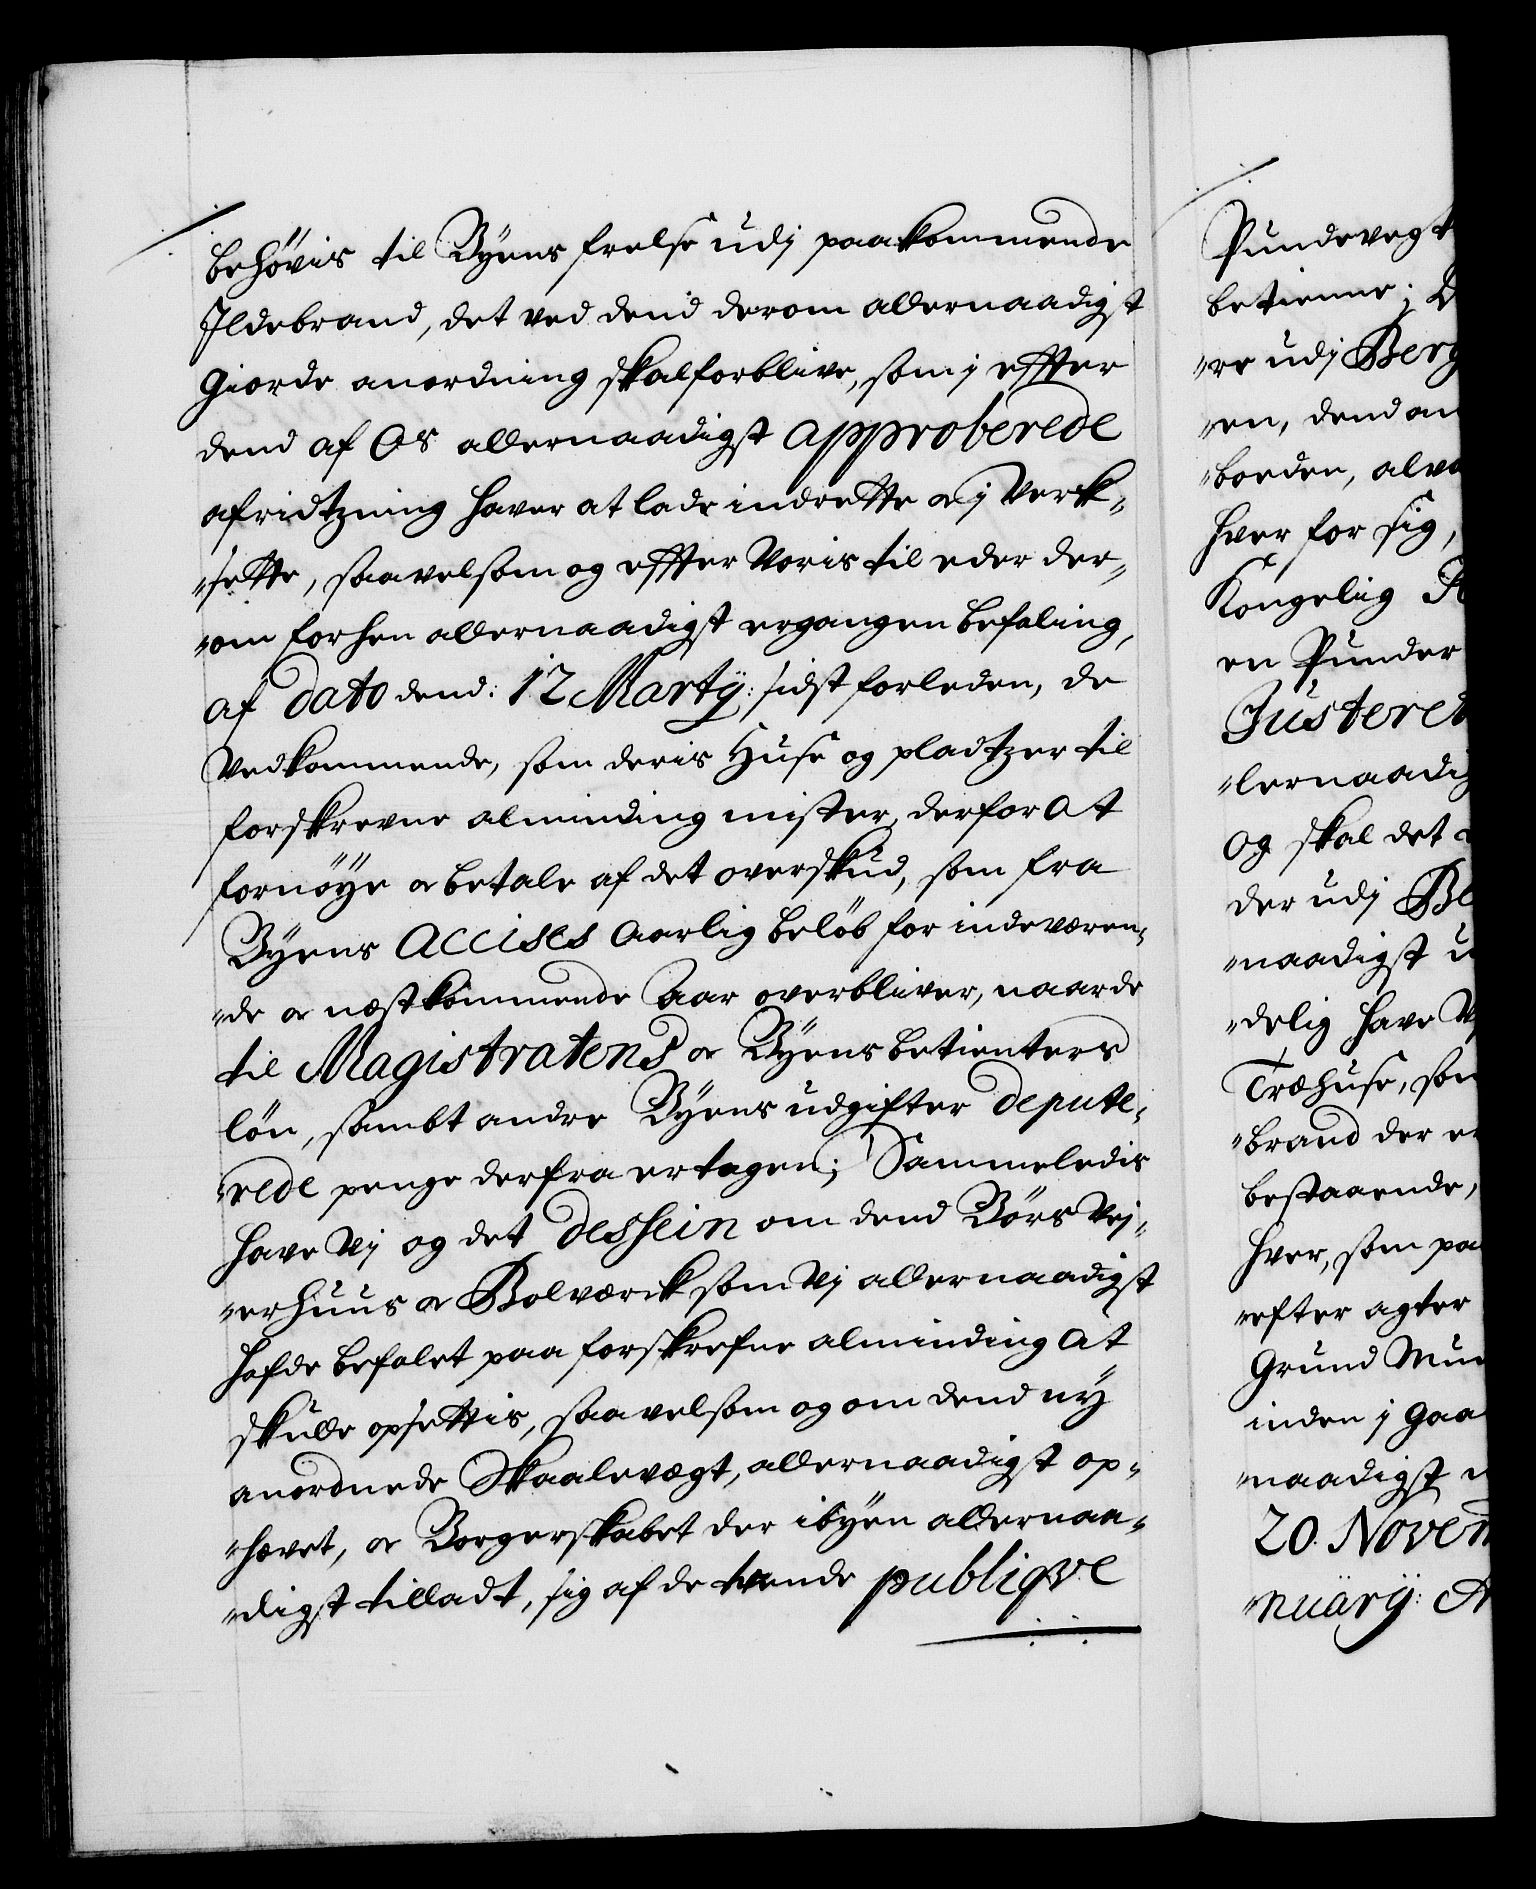 behøvis til Byens frelse udj paakommende
Ildebrand, det ved dend derom allernaadigst
giorde anordning skal forblive, som j effter
dend af Os allernaadigst approberede
afridtzning haver at lade indrette og j Verk-
"sette, saavelsom og effter Voris til eder der-
"om forhen allernaadigst ergangen befaling,
af dato dend: 12 Martÿ: sidst forleden, de
Vedkommende, som deris Huse og pladtzer til
forskrevne alminding mister, derfor at
fornöÿe og betale af det overskud, som fra
Byens Accises Aarlig beløb for indeværen-
"de og næstkommende Aar overbliver, naar de
til Magistratens og Byens betienters
løn, sambt andre Byens udgifter depute-
"rede penge derfra er tagen; Sammeledis
have Vj og det dessein om dend Børs Vej-
"erhuus og Bolværck som Vj allernaadigst
hafde befalet paa forskrefne alminding at
skulle opsettis, saavelsom og om dend nÿ
anordnede Skaalevægt, allernaadigst op-
"hævet, og Borgerskabet der i byen allernaa-
"digst tilladt, sig af de tvende publiqve
Pundevegt
betienne; D
"re udj Berg
"en, dend an
"boeden, alve
hver for sig,
Kongelig
en Punder
Justeret
"lernaadig
og skal det
der udj Be
"naadigst u
"delig have V
Træhuse, som
"brand der er
bestaaende,
hver, som pa
"efter agter
Grund Muu
inden j Gaa
"naadigst
20. Novem
"nuarÿ: A